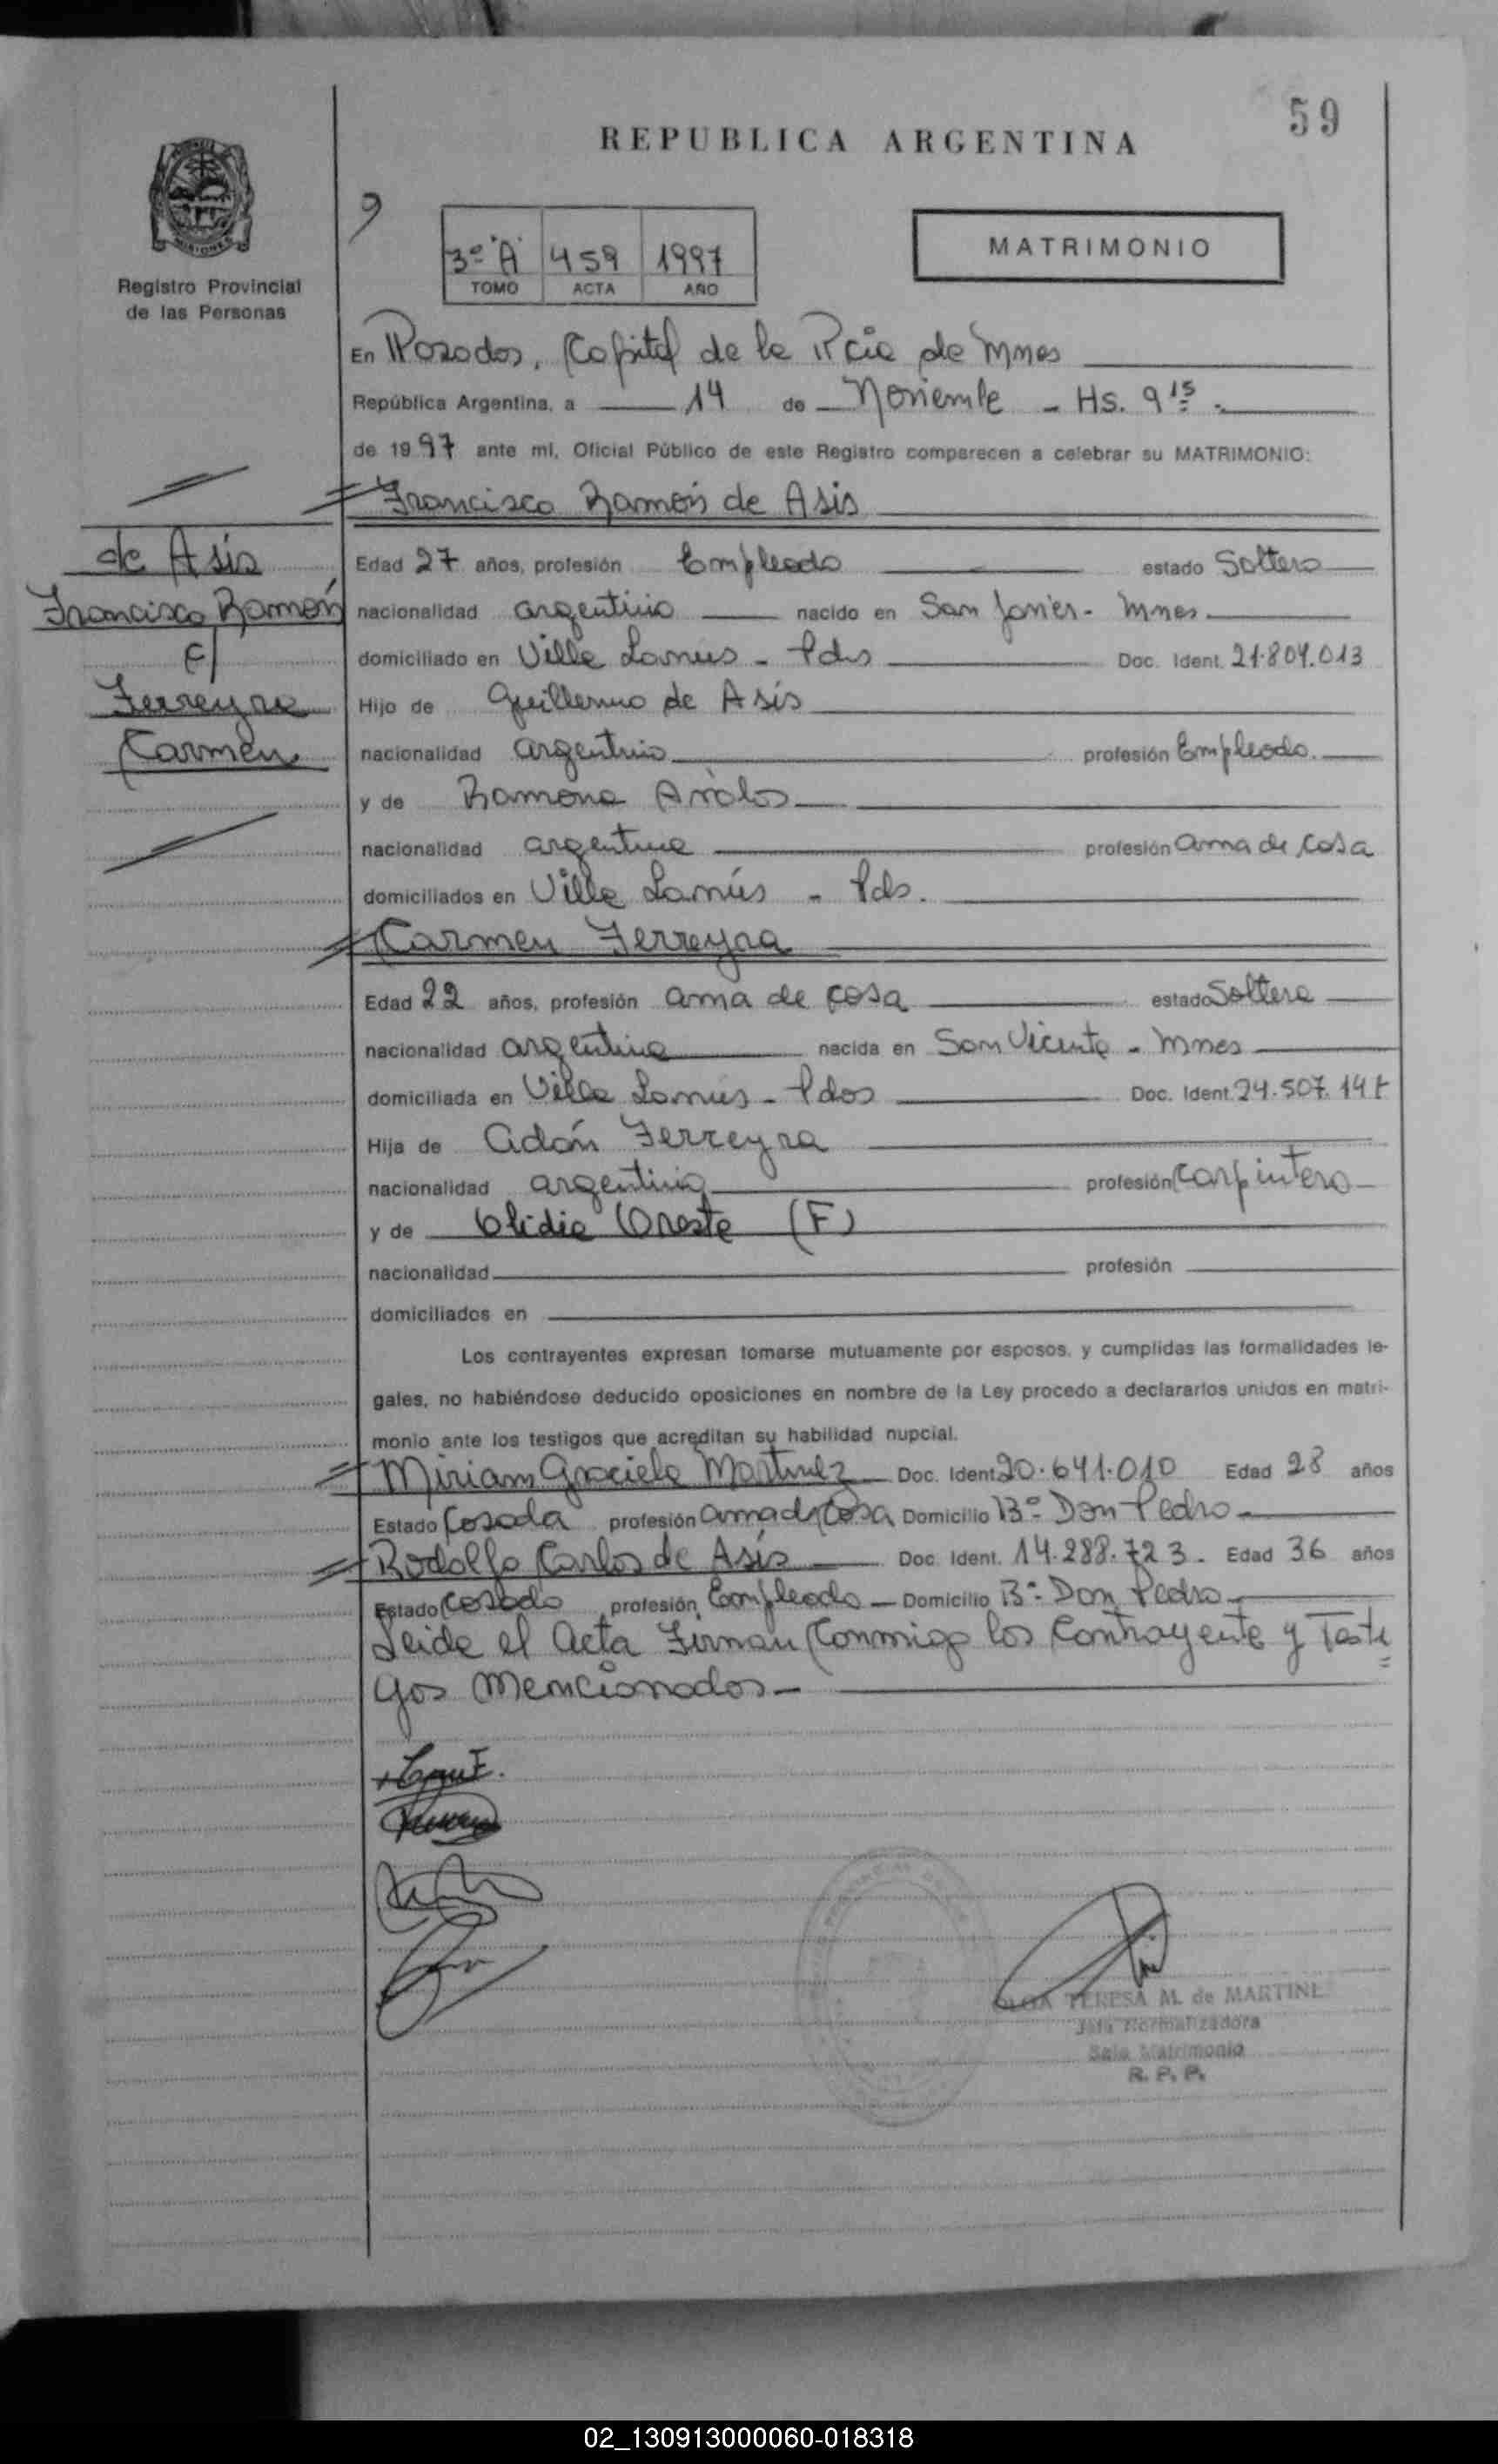 59
REPUBLICA ARGENTINA
MISIONES
Registro Provincial
de las Personas
9
3º "A" 459 1997
TOMO ACTA AÑO
MATRIMONIO
En Posadas, Capital de la Pcia de Mnes
República Argentina, a 14 de Noviembre - Hs. 9 15 -
de 1997 ante mí, Oficial Público de este Registro comparecen a celebrar su MATRIMONIO:
Francisco Ramón de Asis
de Asis
Francisco Ramón
c/
Ferreyra
Carmen
Edad 27 años, profesión Empleado estado Soltero
nacionalidad argentino nacido en San Javier - Mnes
domiciliado en Villa Lanus - Pdas Doc. Ident. 21.804.013
Hijo de Guillermo de Asís
nacionalidad argentino profesión Empleado.
y de Ramona Avalos
nacionalidad argentina profesión ama de casa
domiciliados en Villa Lanús - Pds.
Carmen Ferreyra
Edad 22 años, profesión ama de casa estado Soltera
nacionalidad argentina nacida en San Vicente - Mnes
domiciliada en Villa Lanus - Pdas Doc. Ident. 24.507.147
Hija de Adán Ferreyra
nacionalidad argentino profesión Carpintero
y de Elidia Oreste (F)
nacionalidad profesión
domiciliados en
Los contrayentes expresan tomarse mutuamente por esposos, y cumplidas las formalidades le-
gales, no habiéndose deducido oposiciones en nombre de la Ley procedo a declararlos unidos en matri-
monio ante los testigos que acreditan su habilidad nupcial.
Miriam Graciela Martinez Doc. Ident. 20.641.010 Edad 28 años
Estado Casada profesión ama de Casa Domicilio Bº Don Pedro
Rodolfo Carlos de Asís Doc. Ident. 14.288.723. Edad 36 años
Estado Casado profesión Empleado Domicilio Bº Don Pedro
Leida el Acta Firman Conmigo los Contrayente y Testi
gos Mencionados
TERESA M. de MARTINE
Jefa Normalizadora
Sala Matrimonio
R. P. P.
02_130913000060-018318